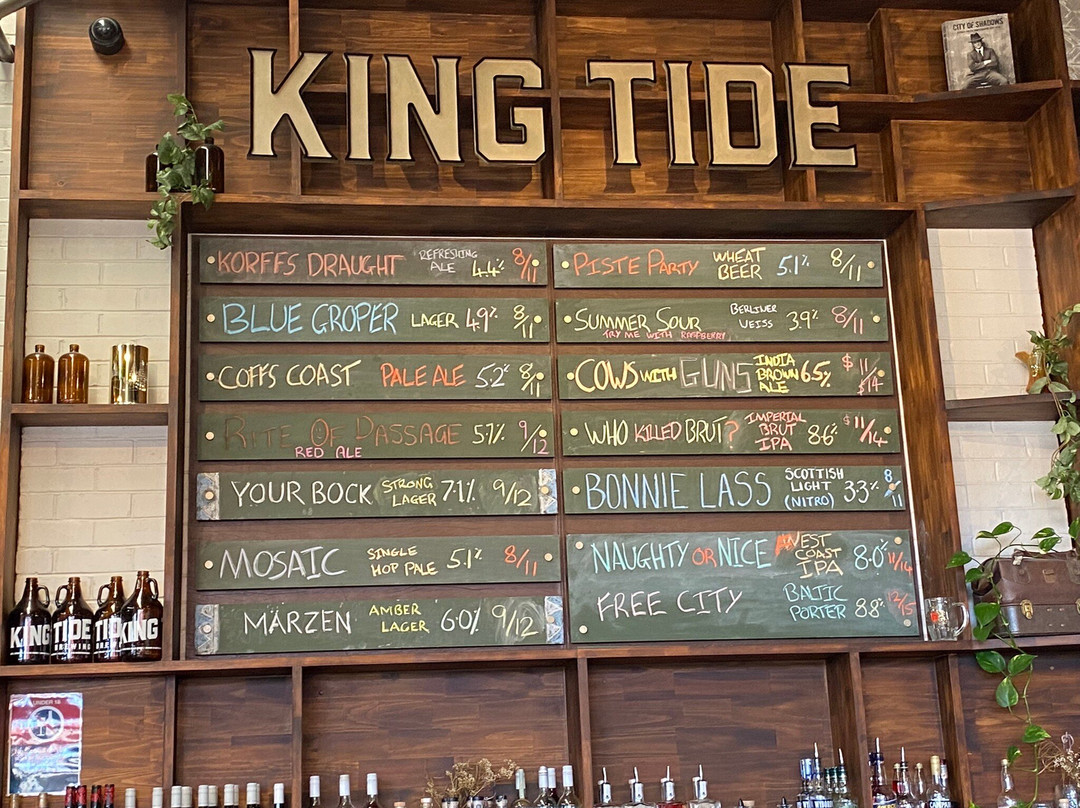 CITY OF SHADOWS
KING TIDE
KORFFS DRAUGHT REFRESHING ALE 4.4% 8/11
BLUE GROPER LAGER 4.9% 8/11
COFFS COAST PALE ALE 5.2% 8/11
RITE OF PASSAGE RED ALE 5.7% 9/12
YOUR BOCK STRONG LAGER 7.1% 9/12
MOSAIC SINGLE HOP PALE 5.1% 8/11
MÄRZEN AMBER LAGER 6.0% 9/12
PISTE PARTY WHEAT BEER 5.1% 8/11
SUMMER SOUR BERLINER WEISS 3.9% 8/11
TRY ME WITH RASPBERRY
COWS WITH GUNS INDIA BROWN ALE 6.5% $11/$14
WHO KILLED BRUT? IMPERIAL BRUT IPA 8.6% $11/14
BONNIE LASS SCOTTISH LIGHT (NITRO) 3.3% 8/11
NAUGHTY OR NICE WEST COAST IPA 8.0% 11/14
FREE CITY BALTIC PORTER 8.8% 12/15
KING TIDE TIDE KING
BREWING
UNDER 18